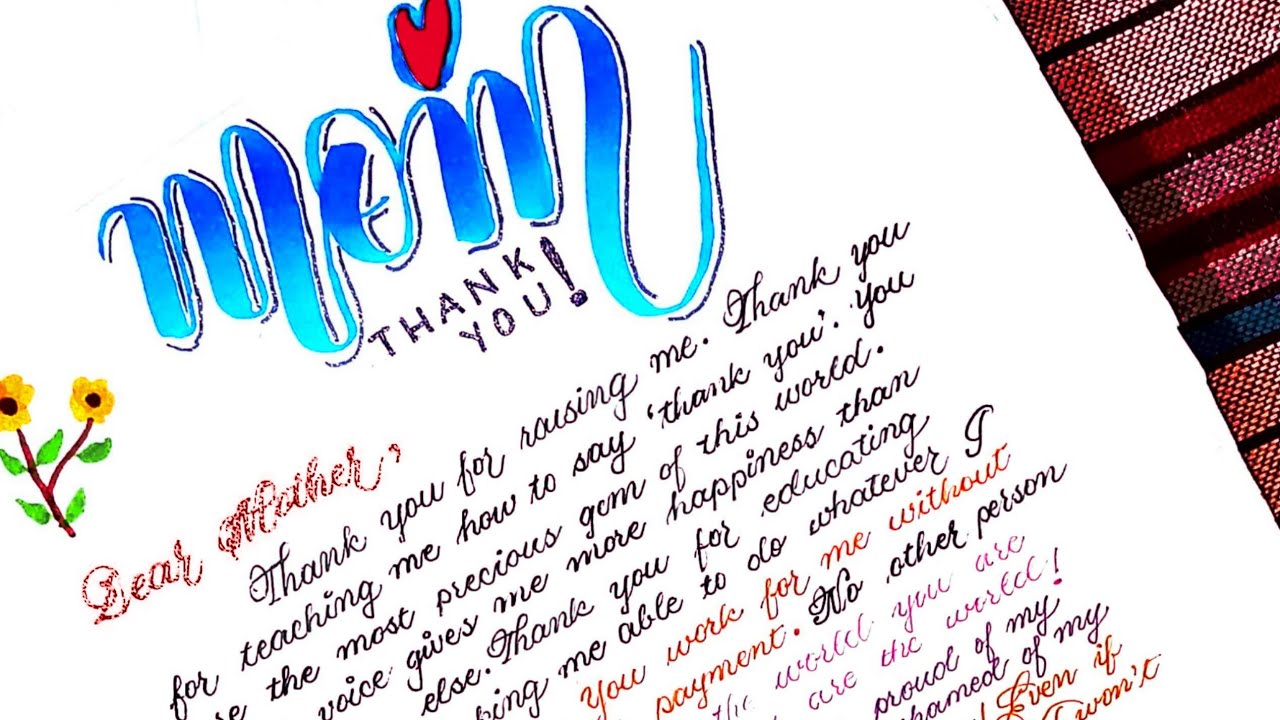 mom
THANK
YOU!
Dear Mother,
Thank you for raising me. Thank you
for teaching me how to say 'thank you'. You
the most precious gem of this world.
voice gives me more happiness than
else. Thank you for educating
me able to do whatever I
you work for me without
payment. No other person
the world you are
are the world!
proud of my
of my
Even if
I won't